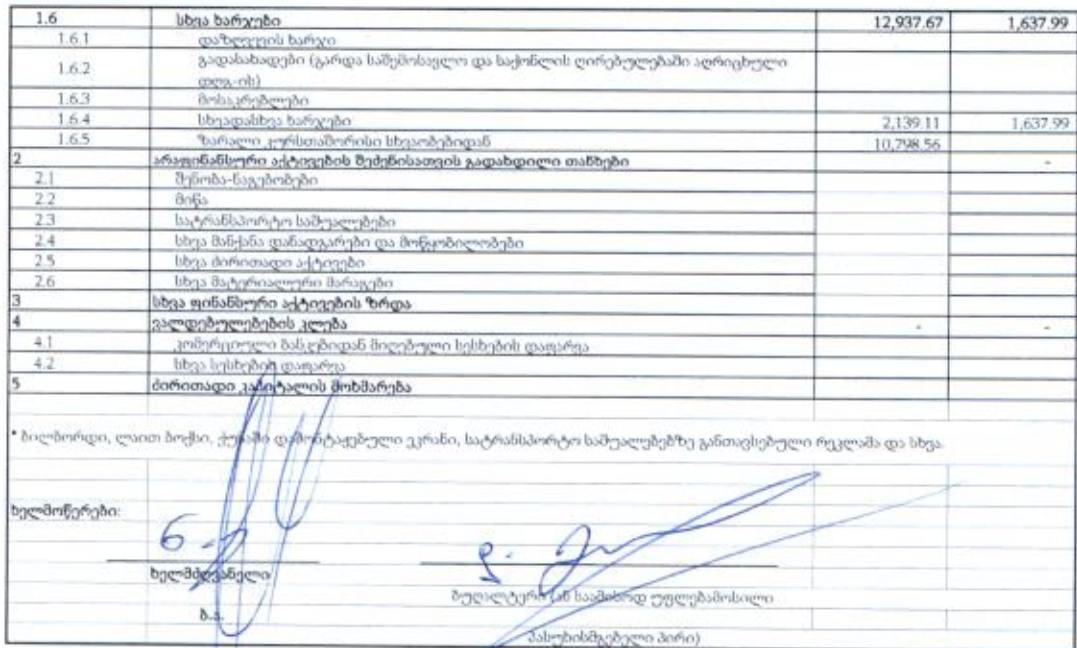 1.6 სხვა ხარჯები 12,937.67 1,637.99
1.6.1 დაზღვევის ხარჯი
1.6.2 გადასახადები (გარდა საშემოსავლო და საქონლის ღირებულებაში აღრიცხული
დღგ-ის)
1.6.3 მოსაკრებლები
1.6.4 სხვადასხვა ხარჯები 2,139.11 1,637.99
1.6.5 ზარალი კურსთაშორისი სხვაობებიდან 10,798.56
2 არაფინანსური აქტივების შეძენისათვის გადახდილი თანხები -
2.1 შენობა-ნაგებობები
2.2 მიწა
2.3 სატრანსპორტო საშუალებები
2.4 სხვა მანქანა დანადგარები და მოწყობილობები
2.5 სხვა ძირითადი აქტივები
2.6 სხვა მატერიალური მარაგები
3 სხვა ფინანსური აქტივების ზრდა
4 ვალდებულებების კლება - -
4.1 კომერციული ბანკებიდან მიღებული სესხების დაფარვა
4.2 სხვა სესხების დაფარვა
5 ძირითადი კაპიტალის მოხმარება
* ბილბორდი, ლაით ბოქსი, ქუჩაში დამონტაჟებული ეკრანი, სატრანსპორტო საშუალებებზე განთავსებული რეკლამა და სხვა.
ხელმოწერები:
ხელმძღვანელი
ბუღალტერი (ან საამისოდ უფლებამოსილი
ბ.ა.
პასუხისმგებელი პირი)